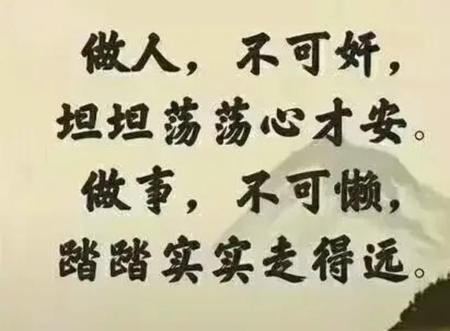 做人，不可奸，
坦坦荡荡心才安。
做事，不可懒，
踏踏实实走得远。